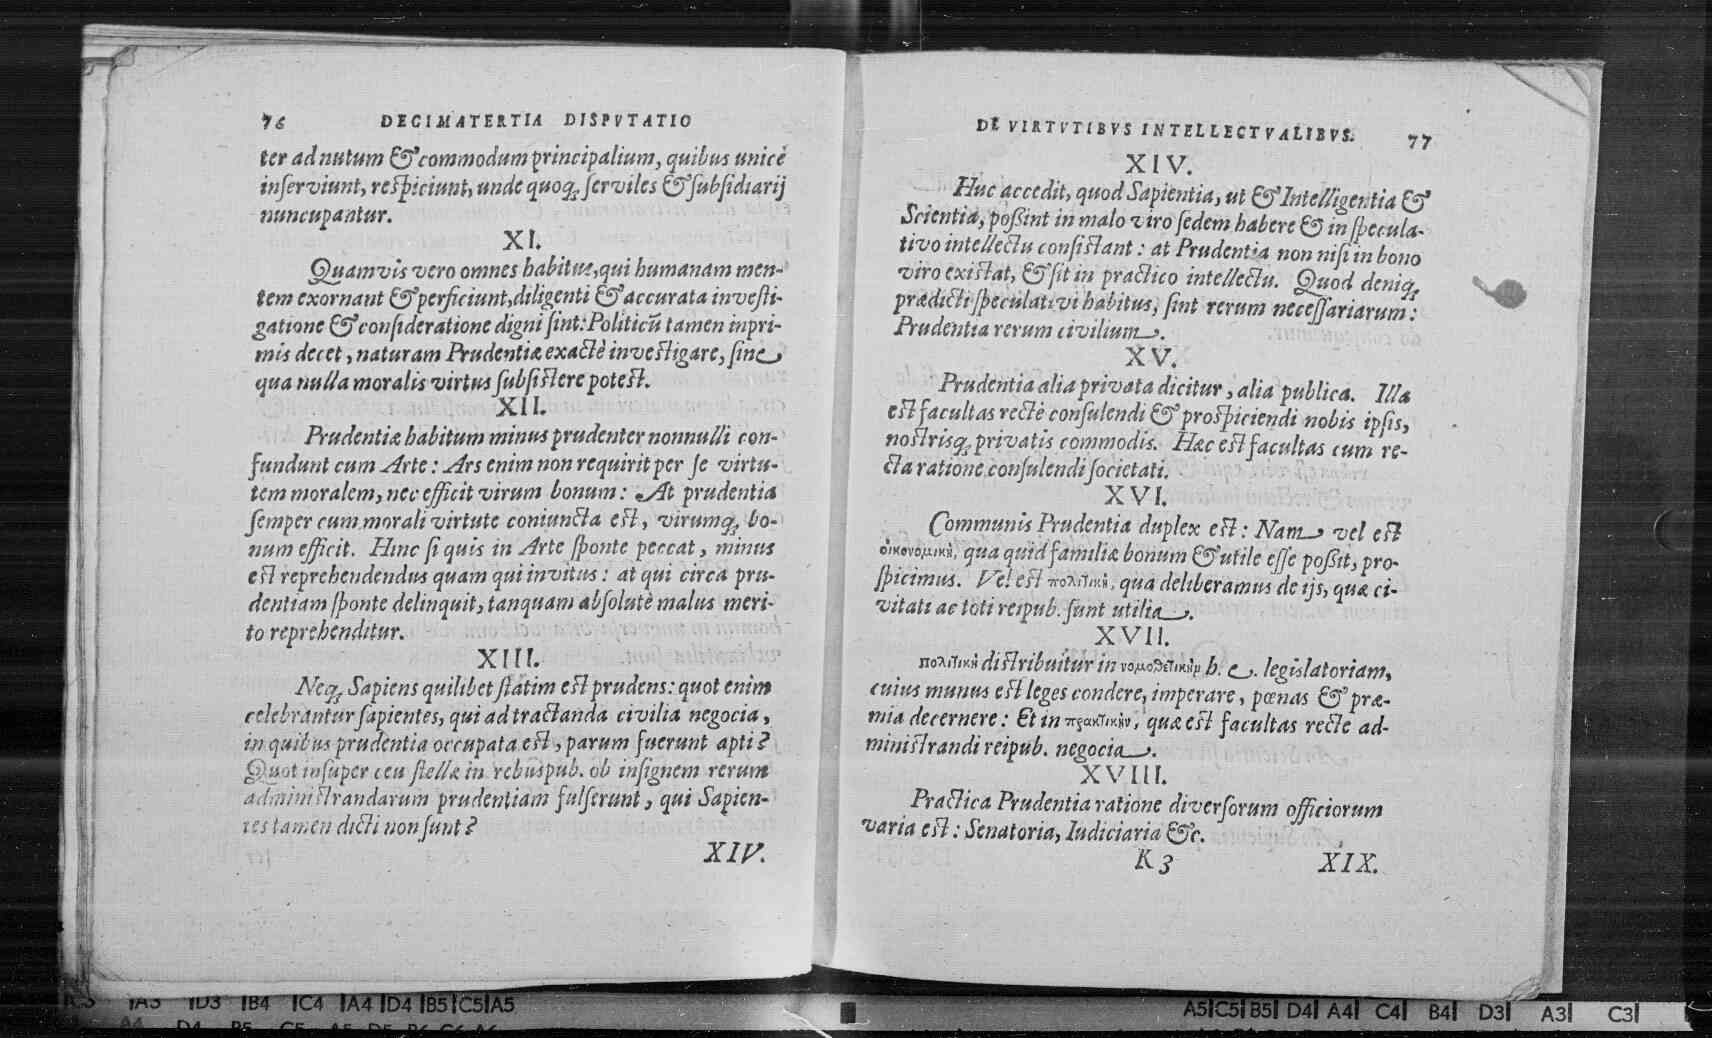 76 DECIMATERTIA DISPVTATIO
ter ad nutum & commodum principalium, quibus unicè
inſerviunt, reſpiciunt, unde quoq; ſerviles & ſubſidiarij
nuncupantur.
XI.
Quamvis vero omnes habitus, qui humanam men-
tem exornant & perficiunt, diligenti & accurata inveſti-
gatione & conſideratione digni ſint: Politicū tamen inpri-
mis decet, naturam Prudentiæ exactè inveſtigare, ſine
qua nulla moralis virtus ſubſiſtere poteſt.
XII.
Prudentiæ habitum minus prudenter nonnulli con-
fundunt cum Arte: Ars enim non requirit per ſe virtu-
tem moralem, nec efficit virum bonum: At prudentia
ſemper cum morali virtute coniuncta eſt, virumq; bo-
num efficit. Hinc ſi quis in Arte ſponte peccat, minus
eſt reprehendendus quam qui invitus: at qui circa pru-
dentiam ſponte delinquit, tanquam abſolutè malus meri-
to reprehenditur.
XIII.
Neq; Sapiens quilibet ſtatim eſt prudens: quot enim
celebrantur ſapientes, qui ad tractanda civilia negocia,
in quibus prudentia occupata eſt, parum fuerunt apti?
Quot inſuper ceu ſtellæ in rebuſpub. ob inſignem rerum
adminiſtrandarum prudentiam fulſerunt, qui Sapien-
tes tamen dicti non ſunt?
XIV.
DE VIRTVTIBVS INTELLECTVALIBVS. 77
XIV.
Huc accedit, quod Sapientia, ut & Intelligentia &
Scientia, poßint in malo viro ſedem habere & in ſpecula-
tivo intellectu conſiſtant: at Prudentia non niſi in bono
viro exiſtat, & ſit in practico intellectu. Quod deniq;
prædicti ſpeculativi habitus, ſint rerum neceſſariarum:
Prudentia rerum civilium.
XV.
Prudentia alia privata dicitur, alia publica. Illa
eſt facultas rectè conſulendi & proſpiciendi nobis ipſis,
noſtrisq; privatis commodis. Hæc eſt facultas cum re-
cta ratione conſulendi ſocietati.
XVI.
Communis Prudentia duplex eſt: Nam vel eſt
οἰκονομικὴ, qua quid familiæ bonum & utile eſſe poßit, pro-
ſpicimus. Vel eſt πολιτικὴ, qua deliberamus de ijs, quæ ci-
vitati ac toti reipub. ſunt utilia.
XVII.
πολιτικὴ diſtribuitur in νομοθετικὴμ h. e. legislatoriam,
cuius munus eſt leges condere, imperare, pœnas & præ-
mia decernere: Et in πρακτικὴν, quæ eſt facultas recte ad-
miniſtrandi reipub. negocia.
XVIII.
Practica Prudentia ratione diverſorum officiorum
varia eſt: Senatoria, Iudiciaria &c.
K 3 XIX.
C3 A3 D3 B4 C4 A4 D4 B5 C5 A5
A5 C5 B5 D4 A4 C4 B4 D3 A3 C3